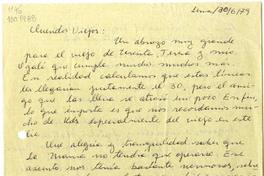 Lima/30/6/79
Queridos Viejos:
Un abrazo muy grande
para el viejo de Vicente, Teria y mío
y que cumpla mucho, muchos más.
En realidad calculamos que estas líneas
les llegarían justamente el 30, pero el ami-
go que las lleva se atrasó un poco. En fin,
lo que importa es que nos recordamos mu-
cho de Uds especialmente del viejo en este
día.
Una alegría y tranquilidad saber que
la mamá no tendría que operarse. Ese
asunto nos tenía bastante nerviosos, sobre